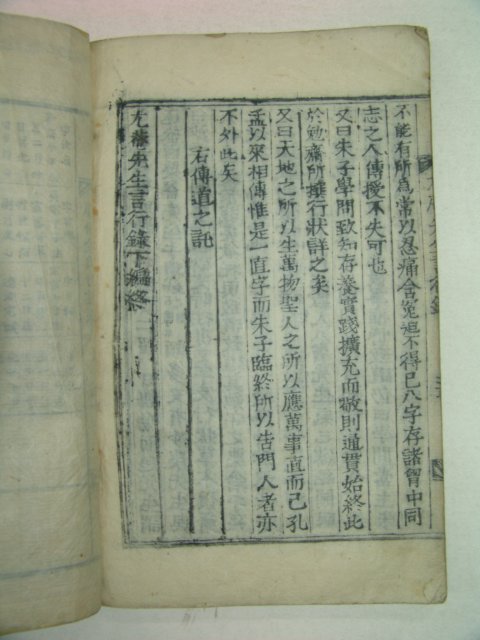 不能有所為常以忍痛含冤迫不得已八字存諸胷中同
志之人傳授不失可也
又曰朱子學問致知存養實踐擴充而敬則通貫始終此
於勉齋所撰行狀詳之矣
又曰天地之所以生萬物聖人之所以應萬事直而已孔
孟以來相傳惟是一直字而朱子臨終所以告門人者亦
不外此矣
右傳道之託
尤菴先生言行錄下編終